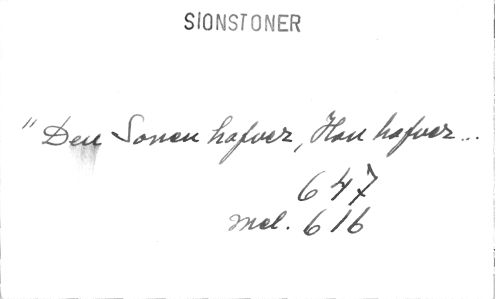 SIONSTONER
"Den Sonen hafver, Han hafver...
647
mel. 616